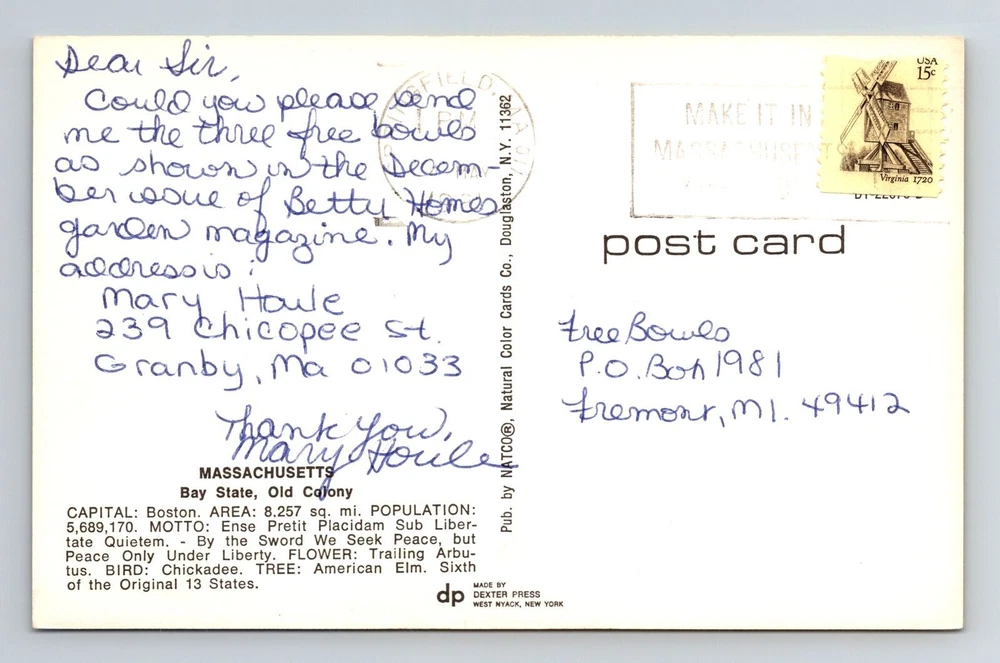 Dear Sir,
Could you please send
me the three free bowls
as shown in the Decem-
ber issue of Betty Homes
garden magazine. My
address is:
Mary Houle
239 Chicopee St.
Granby, Ma 01033
Thank You,
Mary Houle
MASSACHUSETTS
Bay State, Old Colony
CAPITAL: Boston. AREA: 8,257 sq. mi. POPULATION:
5,689,170. MOTTO: Ense Pretit Placidam Sub Liber-
tate Quietem. - By the Sword We Seek Peace, but
Peace Only Under Liberty. FLOWER: Trailing Arbu-
tus. BIRD: Chickadee. TREE: American Elm. Sixth
of the Original 13 States.
Pub. by NATCO®, Natural Color Cards Co., Douglaston, N.Y. 11362
dp
MADE BY
DEXTER PRESS
WEST NYACK, NEW YORK
SPRINGFIELD, MA
PM
MAKE IT IN
MASSACHUSETTS
USA
15c
Virginia 1720
post card
Free Bowls
P.O. Box 1981
Fremont, MI. 49412